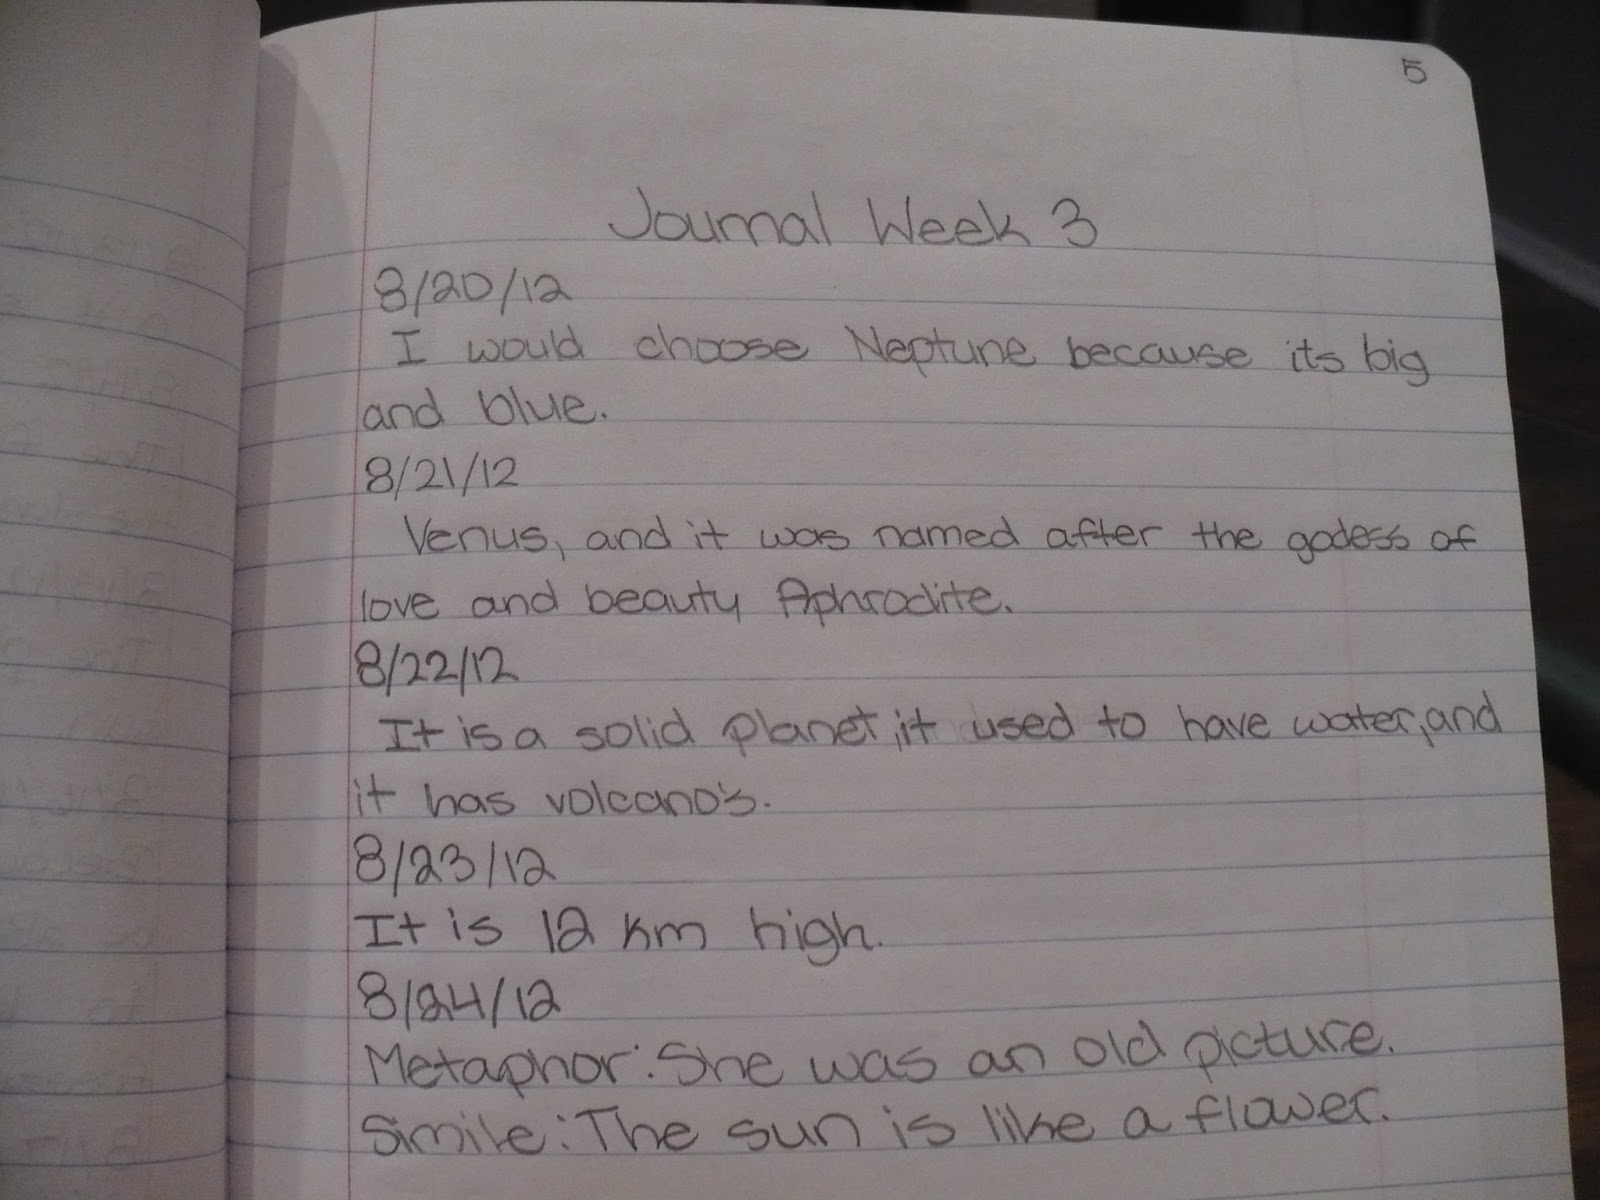 5
Journal Week 3
8/20/12
I would choose Neptune because its big
and blue.
8/21/12
Venus, and it was named after the godess of
love and beauty Aphrodite.
8/22/12
It is a solid planet, it used to have water, and
it has volcano's.
8/23/12
It is 12 km high.
8/24/12
Metaphor: She was an old picture.
Simile: The sun is like a flower.